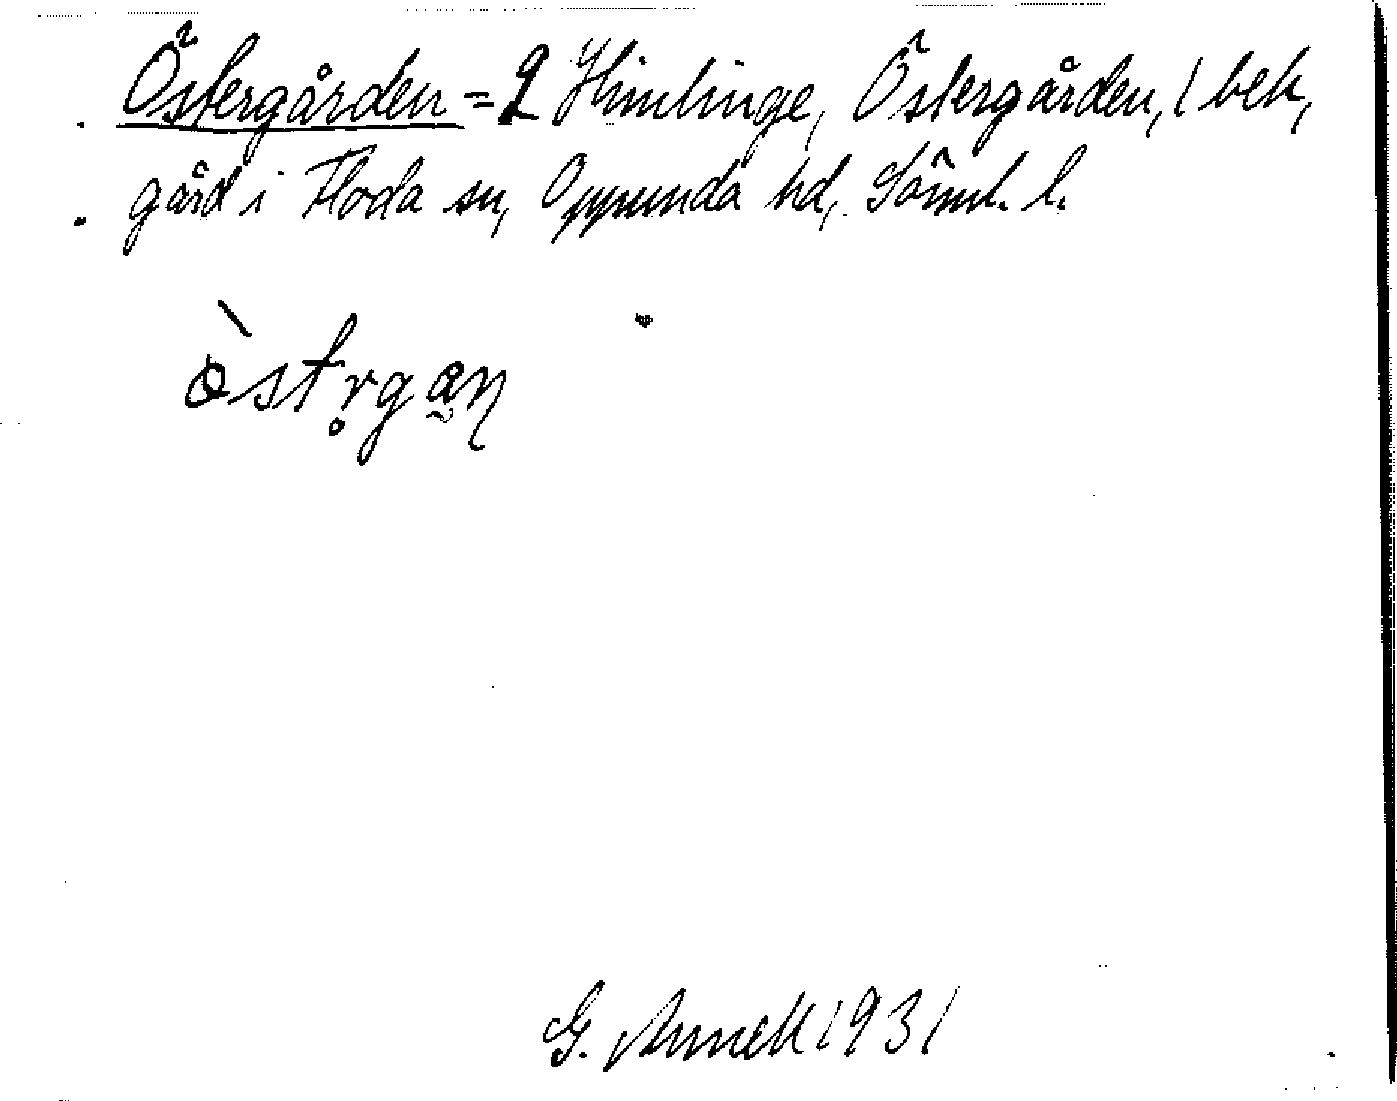 Östergården = 2 Himlinge, Östergården, 1 bek,
gård i Floda sn, Oppunda hd, Söml. l.
G. Annell 1931